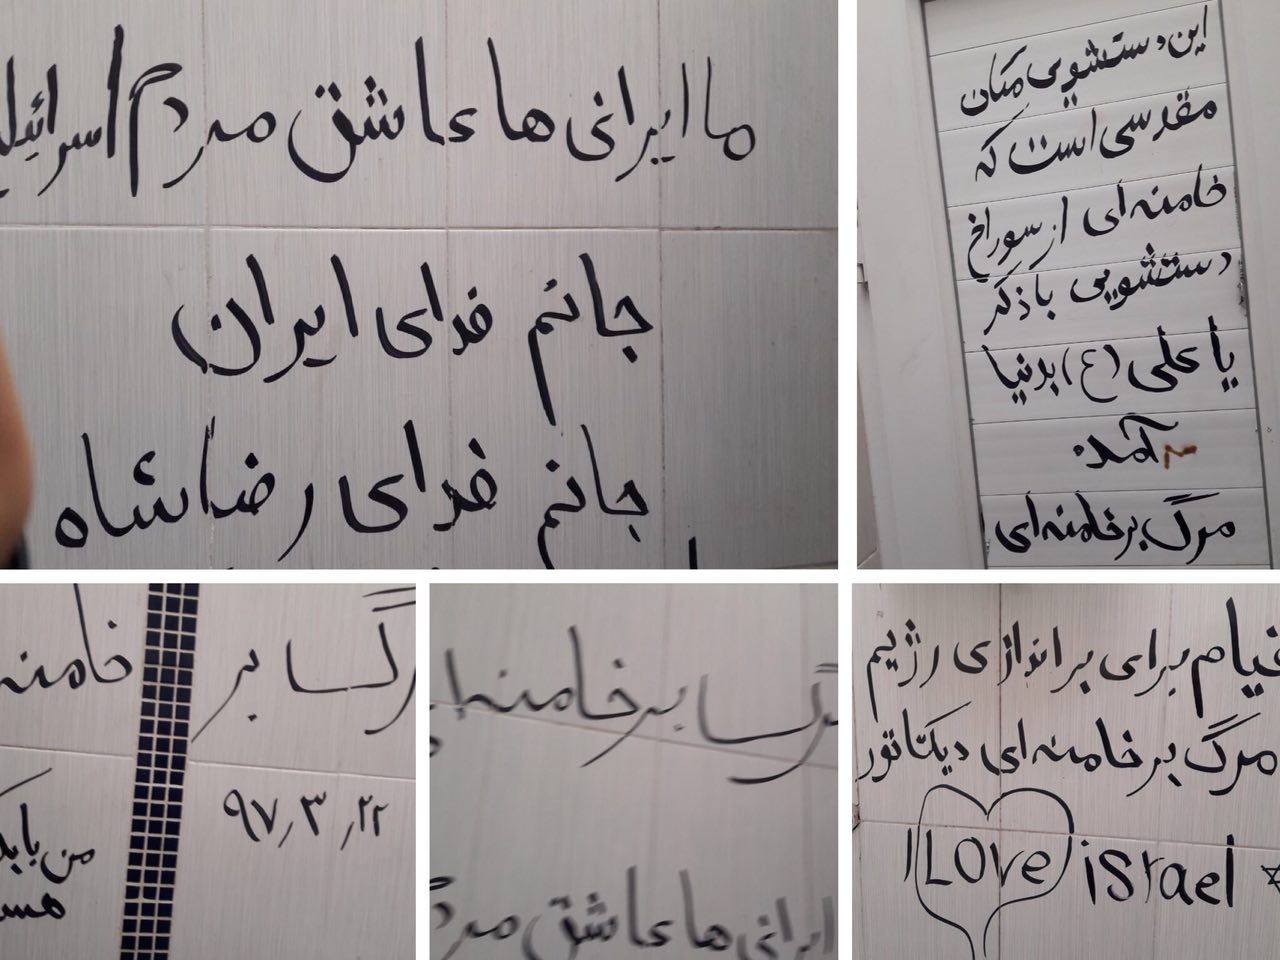 ما ایرانی ها عاشق مردم اسرائیل
جانم فدای ایران
جانم فدای رضا شاه
این دستشویی مکان
مقدسی است که
خامنه ای از سوراخ
دستشویی با ذکر
یا علی (ع) بدنیا
آمده
مرگ بر خامنه ای
رگ بر خامنه
۹۷٫۳٫۲۲
من بابک
هست
رگ بر خامنه ا
ایرانی ها عاشق مرد
قیام برای براندازی رژیم
مرگ بر خامنه ای دیکتاتور
I LOVE iSrael